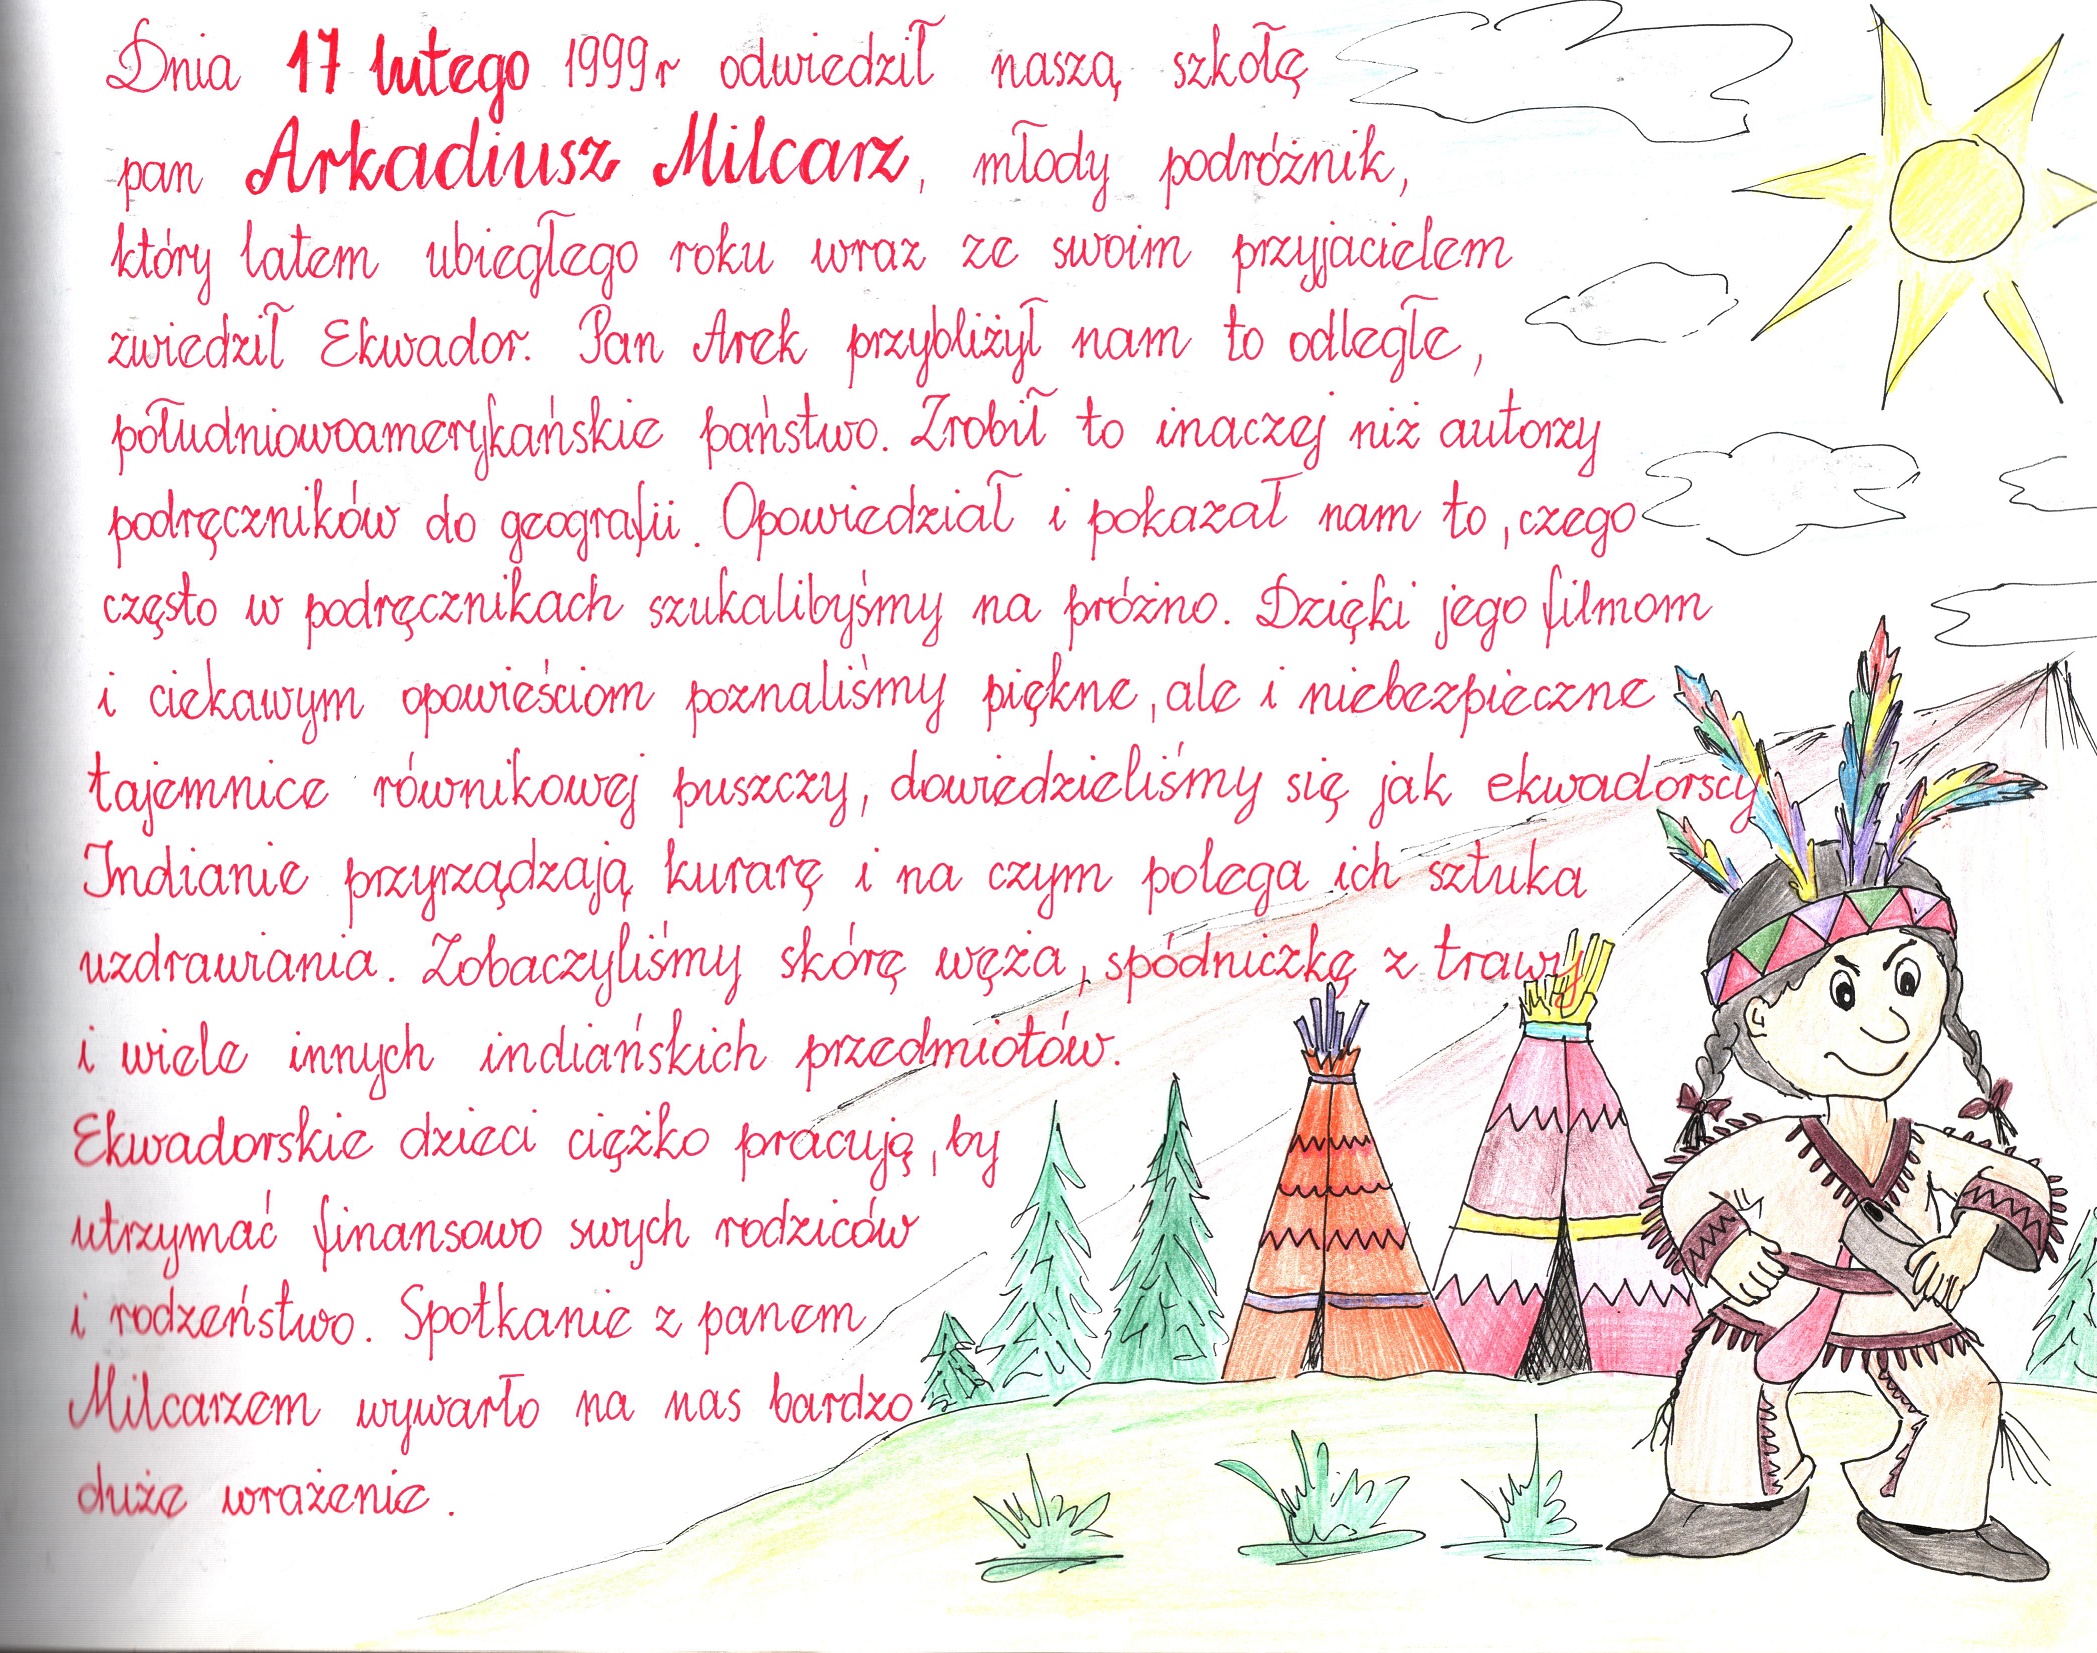 Dnia 17 lutego 1999r odwiedził naszą szkołę
pan Arkadiusz Milcarz, młody podróżnik,
który latem ubiegłego roku wraz ze swoim przyjacielem
zwiedził Ekwador. Pan Arek przybliżył nam to odległe,
południowoamerykańskie państwo. Zrobił to inaczej niż autorzy
podręczników do geografii. Opowiedział i pokazał nam to, czego
często w podręcznikach szukalibyśmy na próżno. Dzięki jego filmom
i ciekawym opowieściom poznaliśmy piękne, ale i niebezpieczne
tajemnice równikowej puszczy, dowiedzieliśmy się jak ekwadorscy
Indianie przyrządzają kurarę i na czym polega ich sztuka
uzdrawiania. Zobaczyliśmy skórę węża, spódniczkę z trawy
i wiele innych indiańskich przedmiotów.
Ekwadorskie dzieci ciężko pracują, by
utrzymać finansowo swych rodziców
i rodzeństwo. Spotkanie z panem
Milcarzem wywarło na nas bardzo
duże wrażenie.